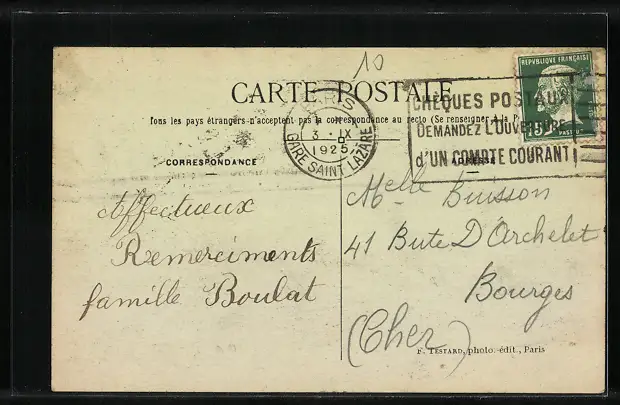 10
CARTE POSTALE
Tous les pays étrangers n'acceptent pas la correspondance au recto (Se renseigner à la P
CORRESPONDANCE
ADRESSE
PARIS
3 - IX
1925
GARE SAINT LAZARE
CHÈQUES POSTAUX
DEMANDEZ L'OUVERTURE
d'UN COMPTE COURANT
REPUBLIQUE FRANÇAISE
15
PASTEUR
Affectueux
Remerciments
famille Boulat
Melle Buisson
41 Bute D'Archelet
Bourges
(Cher)
F. TESTARD, photo.-édit., Paris